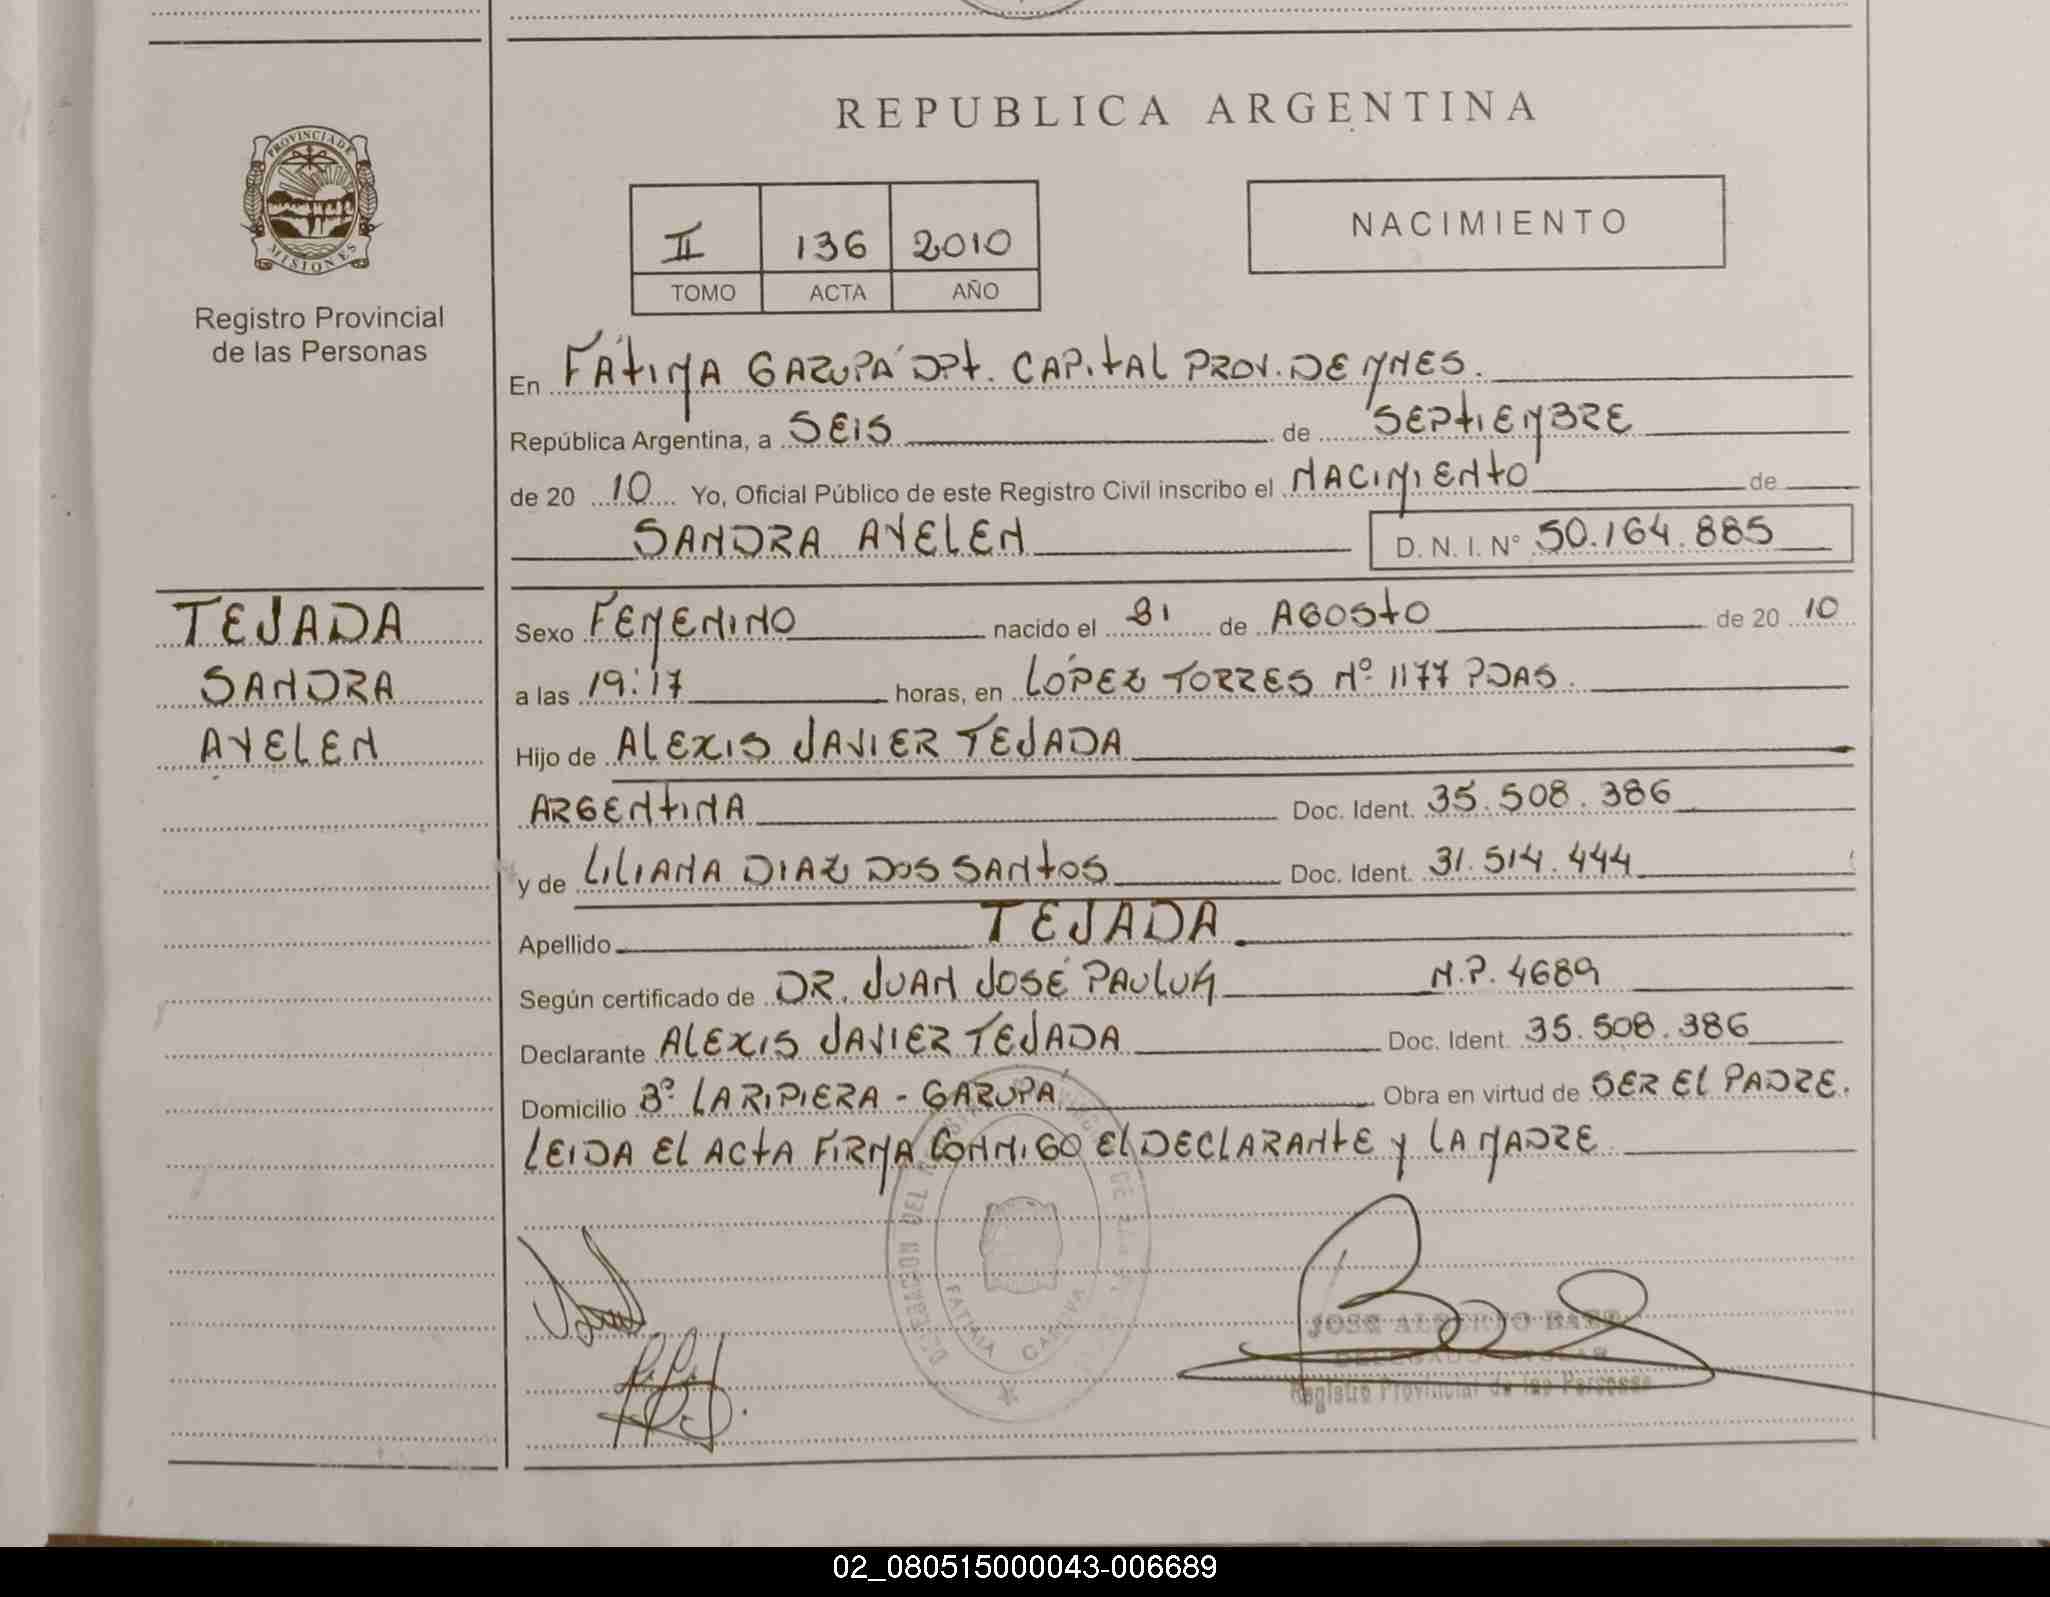 REPUBLICA ARGENTINA
PROVINCIA DE
MISIONES
Registro Provincial
de las Personas
II 136 2010
TOMO ACTA AÑO
NACIMIENTO
En FÁTIMA GARUPÁ DPt. CAPITAL PROV. DE MNES.
República Argentina, a SEIS de SEPTIEMBRE
de 20 10 Yo, Oficial Público de este Registro Civil inscribo el NACIMIENTO de
SANDRA AYELEN D. N. I. N° 50.164.885
TEJADA
SANDRA
AYELEN
Sexo FEMENINO nacido el 31 de AGOSTO de 20 10
a las 19:17 horas, en LÓPEZ TORRES Nº 1177 PDAS.
Hijo de ALEXIS JAVIER TEJADA
ARGENTINA Doc. Ident. 35.508.386
y de LILIANA DIAZ DOS SANTOS Doc. Ident. 31.514.444
Apellido TEJADA
Según certificado de DR. JUAN JOSÉ PAULUK M.P. 4689
Declarante ALEXIS JAVIER TEJADA Doc. Ident. 35.508.386
Domicilio Bº LA RIPIERA - GARUPÁ Obra en virtud de SER EL PADRE.
LEIDA EL ACTA FIRMA CONMIGO EL DECLARANTE y LA MADRE
FATIMA GARUPA
Registro Provincial de las Personas
02_080515000043-006689